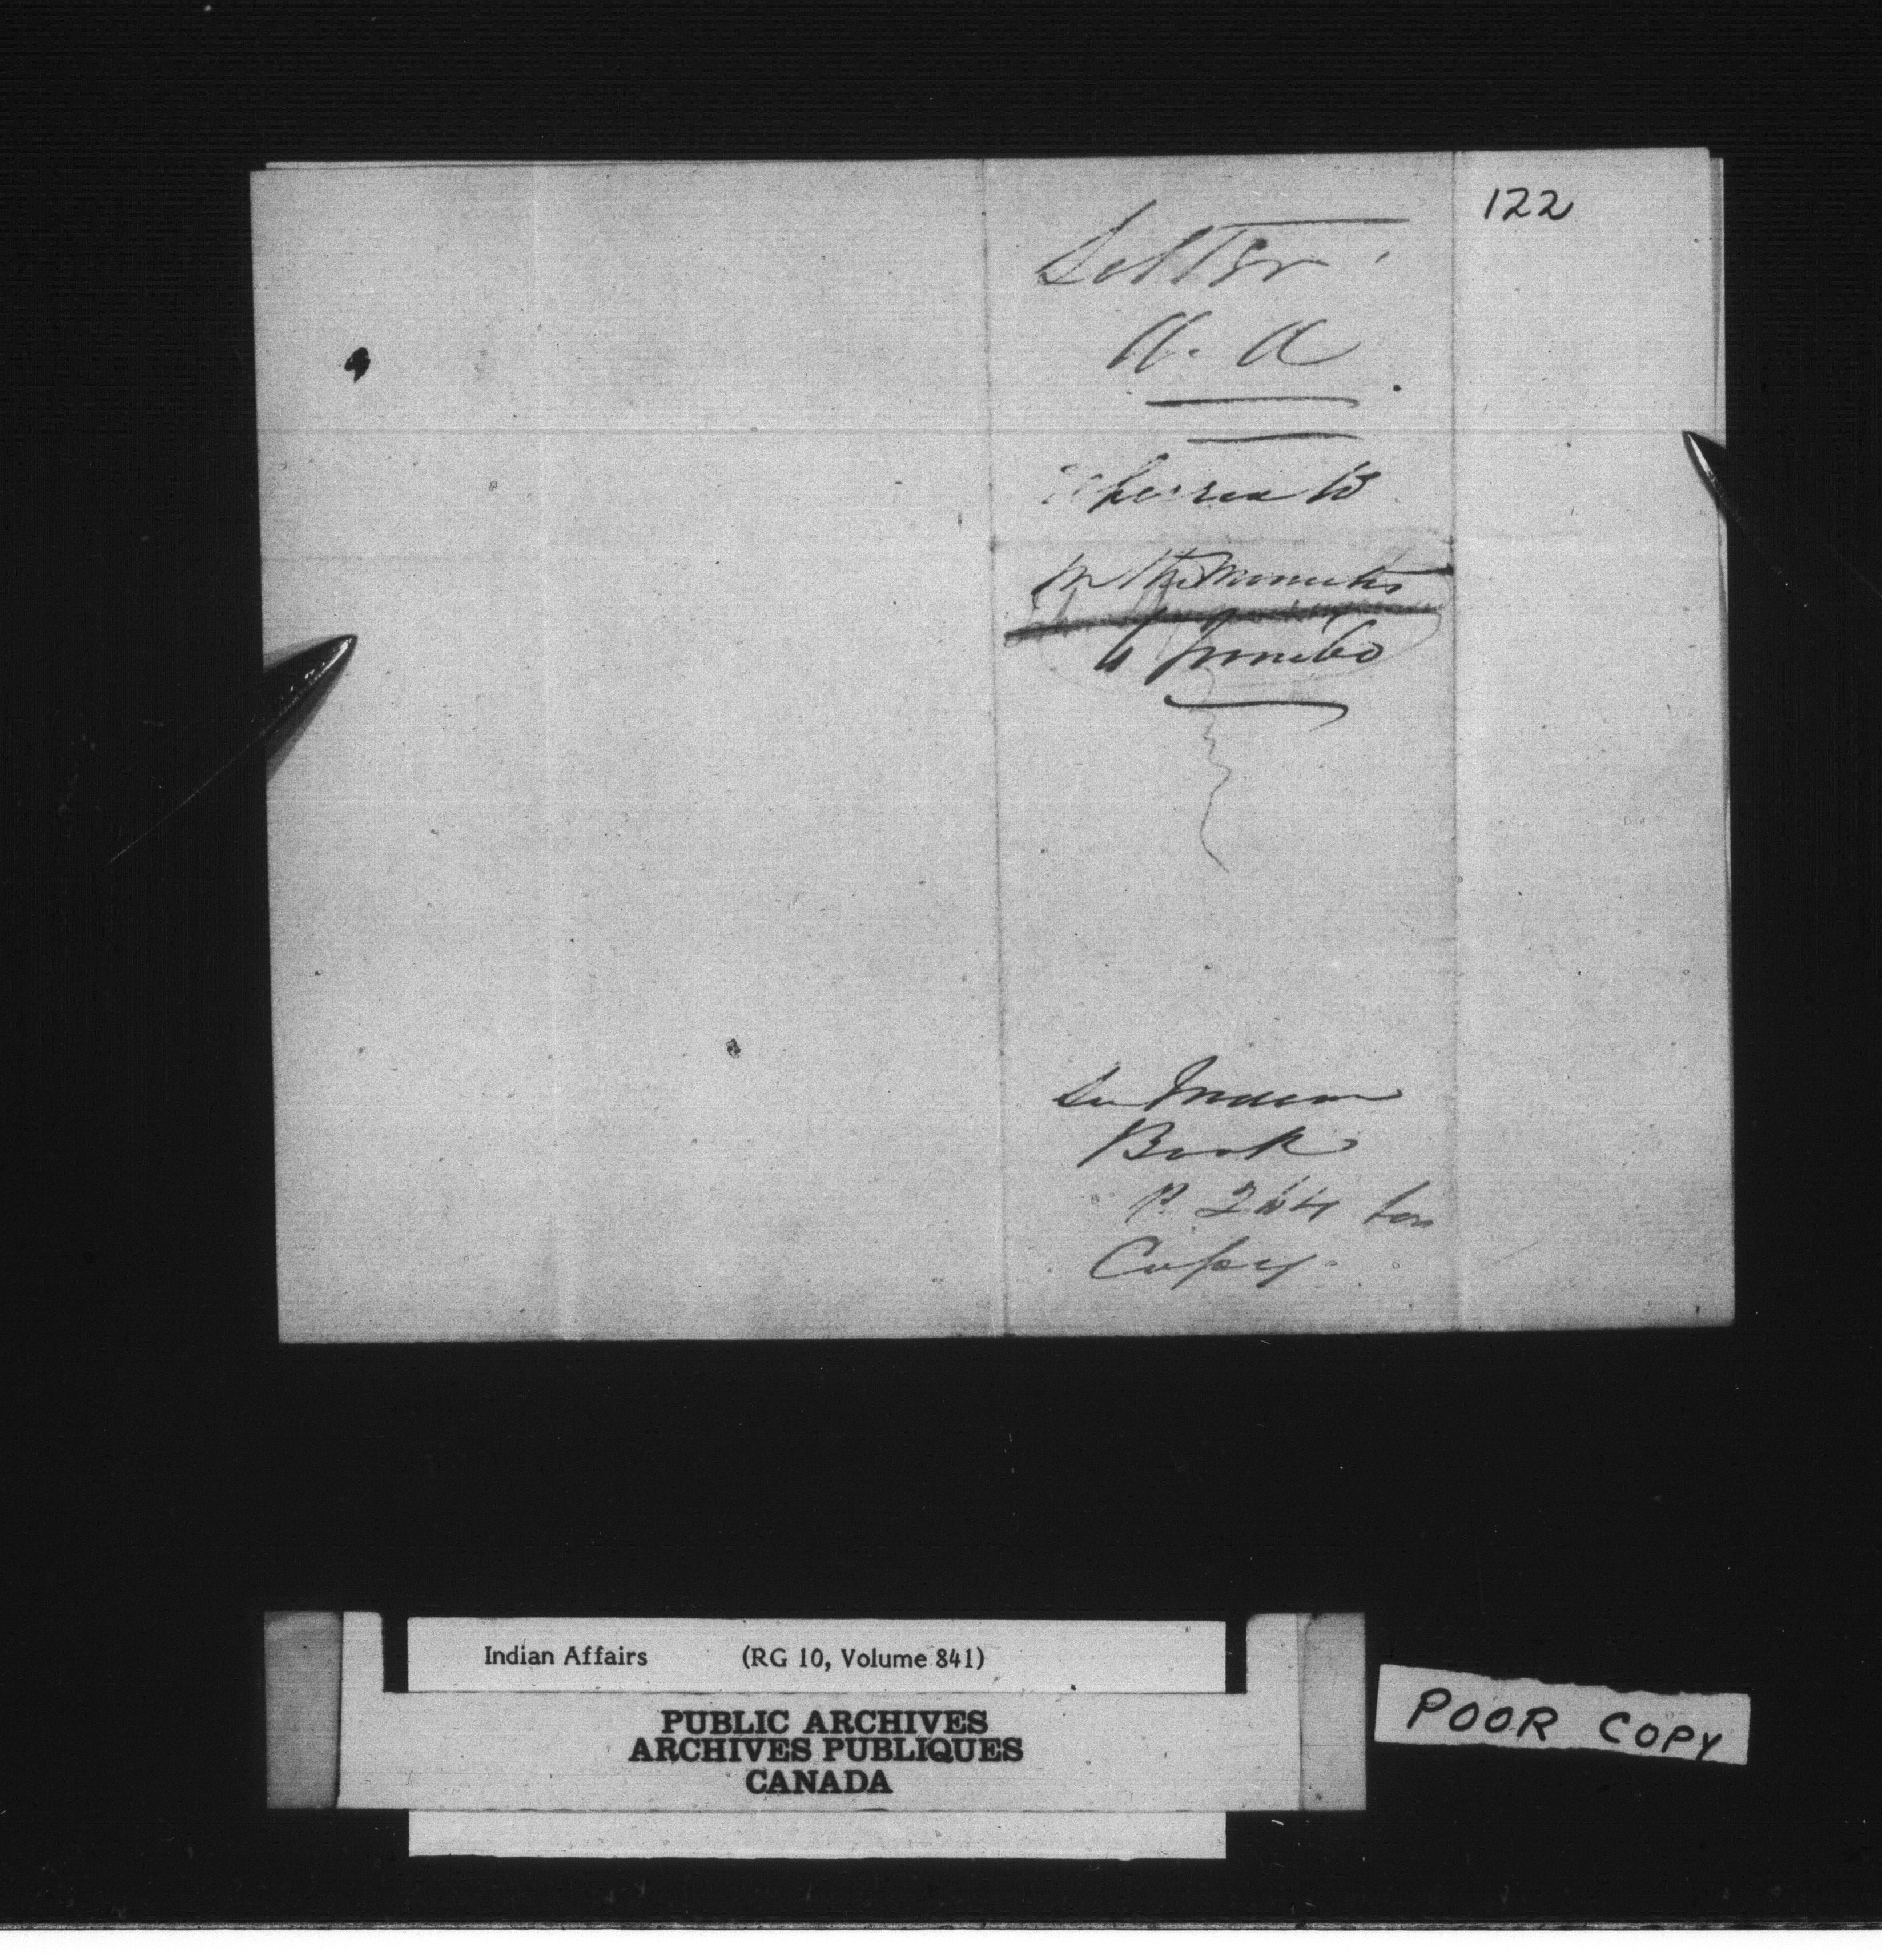 122
Letter
A. A
referred to
in the minutes
See Indian
Book
P. 244 for
Copy.
Indian Affairs (RG 10, Volume 841)
PUBLIC ARCHIVES
ARCHIVES PUBLIQUES
CANADA
POOR COPY